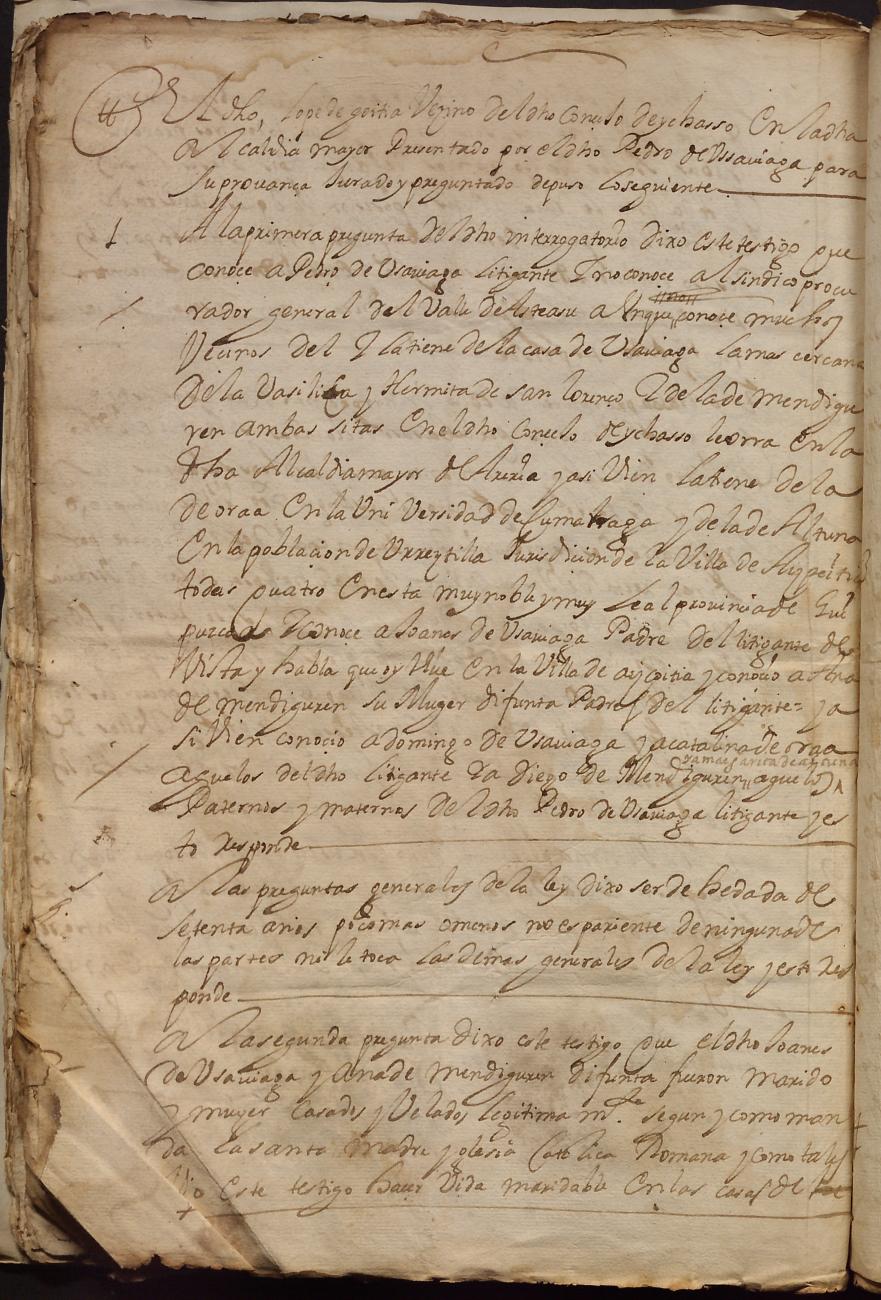 El dho, Lope de goitia Vezino del dho Concejo de ychasso En la dha
Alcaldia mayor Presentado por el dho Pedro de Usauiaga para
su prouança Jurado y preguntado depuso lo seguiente
1 A la primera pregunta del dho interrogatorio dixo este testigo que
conoce a Pedro de Usauiaga litigante I no conoce al sindico procu
rador general del Valle de Asteasu a Unque conoce muchos
Vecinos del I la tiene de la casa de Usauiaga la mas cercana
de la Vasilica y Hermita de san lorenço I de la de mendigu
ren ambas sitas En el dho Concejo de ychasso en la
dha Alcaldia mayor de Areria y asi Vien la tiene de la
de oraa En la Uni Versidad de Çumarraga y de la de Altuna
En la poblacion de Urreytilia Jurisdicion de la Villa de Azpeitia
todas quatro En esta muy noble y muy Leal provincia de Gui
puzcoa I Conoce a Joanes de Usauiaga Padre del litigante de
Vista y habla que oy Viue En la Villa de azcoitia y conoció a Ana
de mendiguren su Muger difunta Padres del litigante = y a
si Vien conocio a domingo de Usauiaga y a catalina de oraa
aguelos del dho litigante I a diego de Mendiguren y a maria de altuna aguelos
Paternos y maternos del dho Pedro de Usauiaga litigante y es
to responde
A las preguntas generales de la ley dixo ser de hedad de
setenta años poco mas o menos no es pariente de ninguna de
las partes ni le toca las demas generales de la ley y esto res
ponde
A la segunda pregunta dixo este testigo que el dho Joanes
de Usauiaga y Ana de mendiguren difunta fueron marido
y muger Casados y Velados legitima mte segun y como man
da la santa madre yglesia Catolica Romana y como tales
Vio Este testigo hacer Vida maridable En las casas de